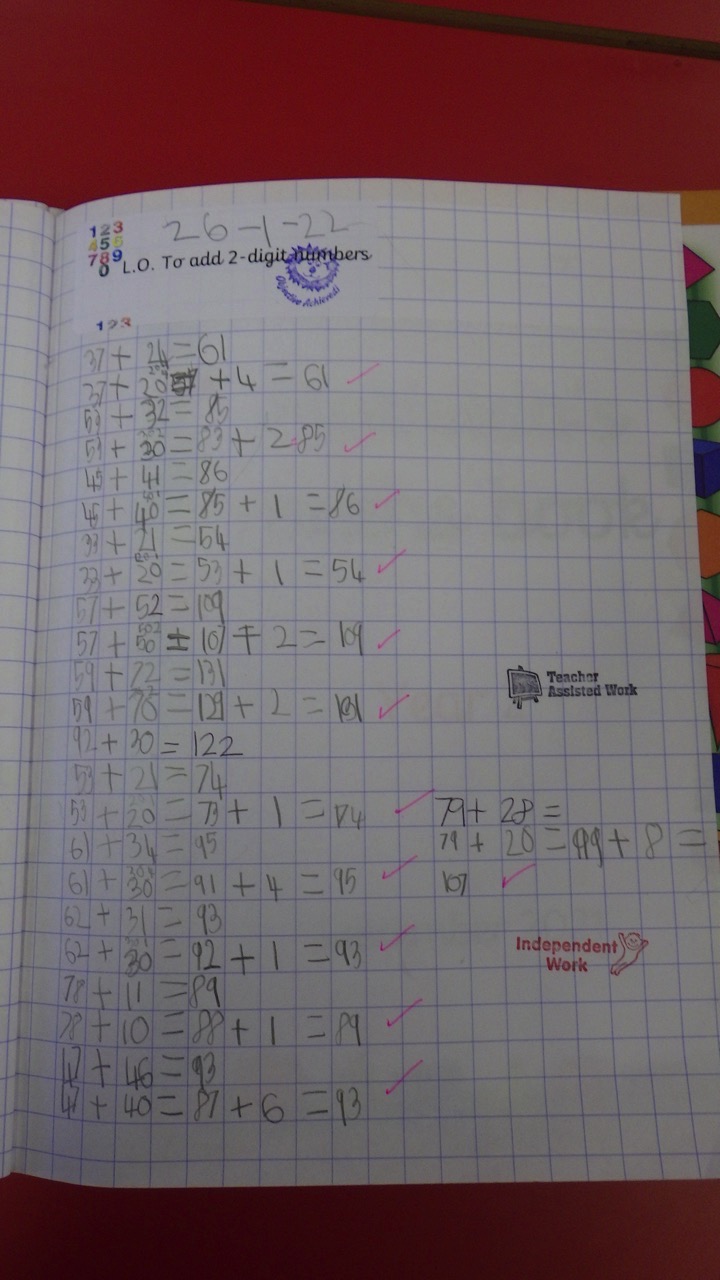 123
455
789
0
26-1-22
L.O. To add 2-digit numbers
Objective Achieved!
123
37 + 24 = 61
37 + 20 + 4 = 61
53 + 32 = 85
53 + 30 = 83 + 2 85
45 + 41 = 86
45 + 40 = 85 + 1 = 86
33 + 21 = 54
33 + 20 = 53 + 1 = 54
57 + 52 = 109
57 + 50 = 107 + 2 = 109
59 + 72 = 131
59 + 70 = 129 + 2 = 131
92 + 30 = 122
53 + 21 = 74
53 + 20 = 73 + 1 = 74
61 + 34 = 95
61 + 30 = 91 + 4 = 95
62 + 31 = 93
62 + 30 = 92 + 1 = 93
78 + 11 = 89
78 + 10 = 88 + 1 = 89
47 + 46 = 93
47 + 40 = 87 + 6 = 93
Teacher
Assisted Work
79 + 28 =
79 + 20 = 99 + 8 =
107
Independent
Work